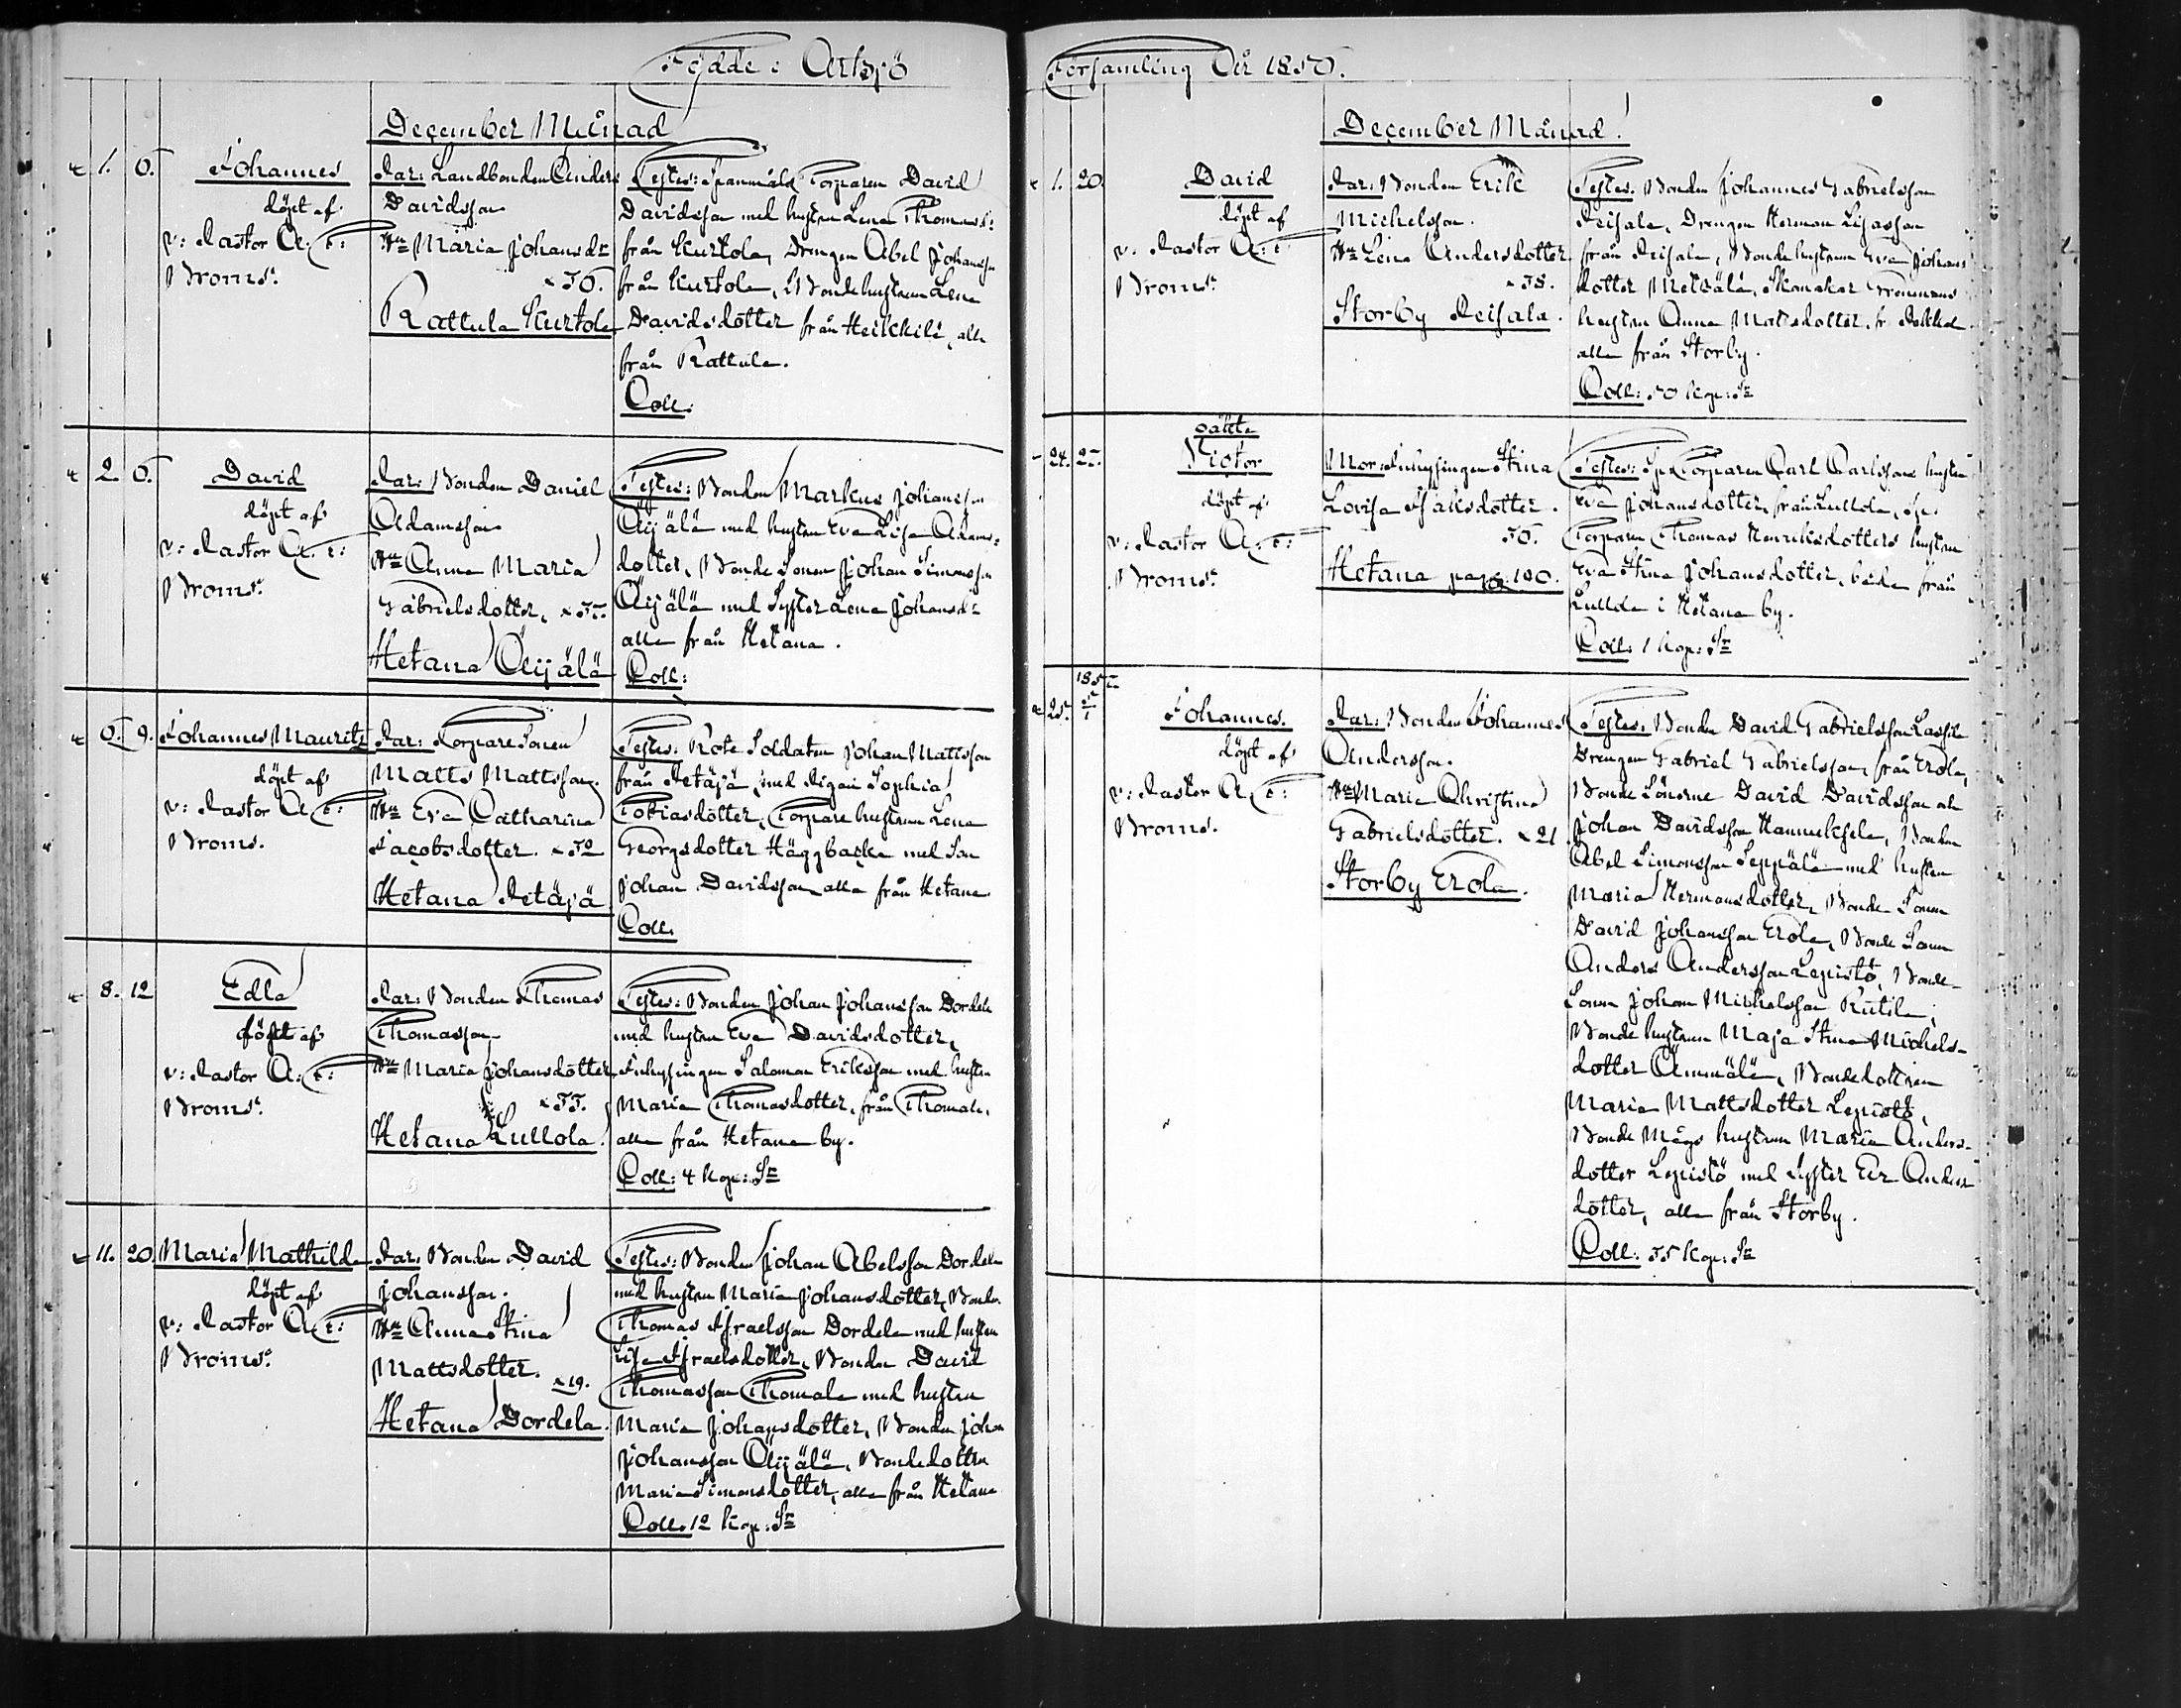 Födde i Artsjö
December Månad
1. 6.
Johannes
döpt af
v: Pastor A. E:
Broms.
Par: Landbonden Anders
Davidsson
Hu Maria Johansdr
36.
Rattula Kurtola
Testes: Spanmåls Torparen David
Davidsson med hustru Lena Thomasd:
från Kurtola, Drengen Abel Johansson
från Kurtola, Bondehustrun Lena
Davidsdotter från Heikkilä, alla
från Rattula.
Coll:
2. 6.
David
döpt af
v: Pastor A. E:
Broms.
Par: Bonden Daniel
Adamsson
Hu Anna Maria
Gabrielsdotter,
Hetana Äijälä
Testes: Bonden Markus Johansson
Äijälä med hustru Eva Lisa Adams-
dotter, Bonde Sonen Johan Simonsson
Äijälä med Syster Lena Johansdr
alla från Hetana.
Coll:
6. 9.
Johannes Mauritz
döpt af
v: Pastor A E:
Broms.
Par: Torpare Sonen
Matts Mattsson.
Hu Eva Catharina
Jacobsdotter.
Hetana Petäjä
Testes: Rote Soldaten Johan Mattsson
från Petäjä, med Pigan Sophia
Tobiasdotter, Torpare hustrun Lena
Georgsdotter Häggbacka med Son
Johan Davidsson alla från Hetana
Coll.
8. 12
Edla
döpt af
v: Pastor A. E:
Broms.
Par: Bonden Thomas
Thomasson
Hu Maria Johansdotter
33.
Hetana Lullola.
Testes: Bonden Johan Johansson Dordela
med hustru Eva Davidsdotter,
Inhysingen Salomon Eriksson med hustru
Maria Thomasdotter, från Thomala,
alla från Hetana by.
Coll: 4 kop: Sr
11. 20
Maria Mathilda
döpt af
v: Pastor A E:
Broms.
Par: Bonden David
Johansson.
Hu Anna Stina
Mattsdotter.
19.
Hetana Dordela.
Testes: Bonden Johan Abelsson Dordela
med hustru Maria Johansdotter, Bonden
Thomas Israelsson Dordela med hustru
Lisa Israelsdotter, Bonden David
Thomasson Thomala med hustru
Maria Johansdotter, Bonden Johan
Johansson Äijälä, Bondedottren
Maria Simonsdotter, alla från Hetana
Coll. 12 kop: Sr
Församling År 1856.
December Månad.
1. 20.
David
döpt af
v. Pastor A. E:
Broms.
Par: Bonden Erik
Michelsson.
Hu Lena Andersdotter
38.
Storby Peisala.
Testes. Bonden Johannes Gabrielsson
Peisala, Drengen Herman Lisasson
från Peisala, Bondehustrun Eva Johans
dotter Metsälä,
hustru Anna Matsdotter, fr
alla från Storby.
Coll: 50 kop: Sr
oäkta
24.
Victor
döpt af
v: Pastor A. E:
Broms.
Mor: Inhysingen Stina
Lovisa Isaksdotter.
36.
Hetana pag. 100.
Testes: Sp Torparen Carl Carlssons hustru
Eva Johansdotter, från Lullola, Sp.
Torparen Thomas Henriksdotters hustru
Eva Stina Johansdotter, båda från
Lullola i Hetana by.
Coll: 1 kop: Sr
25.
Johannes.
döpt af
v: Pastor A E:
Broms.
Par: Bonden Johannes
Andersson.
Hu Maria Christina
Gabrielsdotter. 21
Storby Erola.
Testes. Bonden David Gabrielsson Lassila
Drengen Gabriel Gabrielsson, från Erola,
Bonde Sönerne David Davidsson och
Johan Davidsson Hannuksela, Bonden
Abel Simonsson Seppälä med hustru
Maria Hermansdotter, Bonde Sonen
David Johansson Erola, Bonde Sonen
Anders Andersson Lepistö, Bonde-
Sonen Johan Michelsson Rutila,
Bonde hustrun Maja Stina Michels-
dotter Ämmälä, Bondedottren
Maria Mattsdotter Lepistö,
Bonde Mågs hustrun Maria Anders-
dotter Lepistö med Syster Eva Anders
dotter, alla från Storby.
Coll: 35 kop: Sr